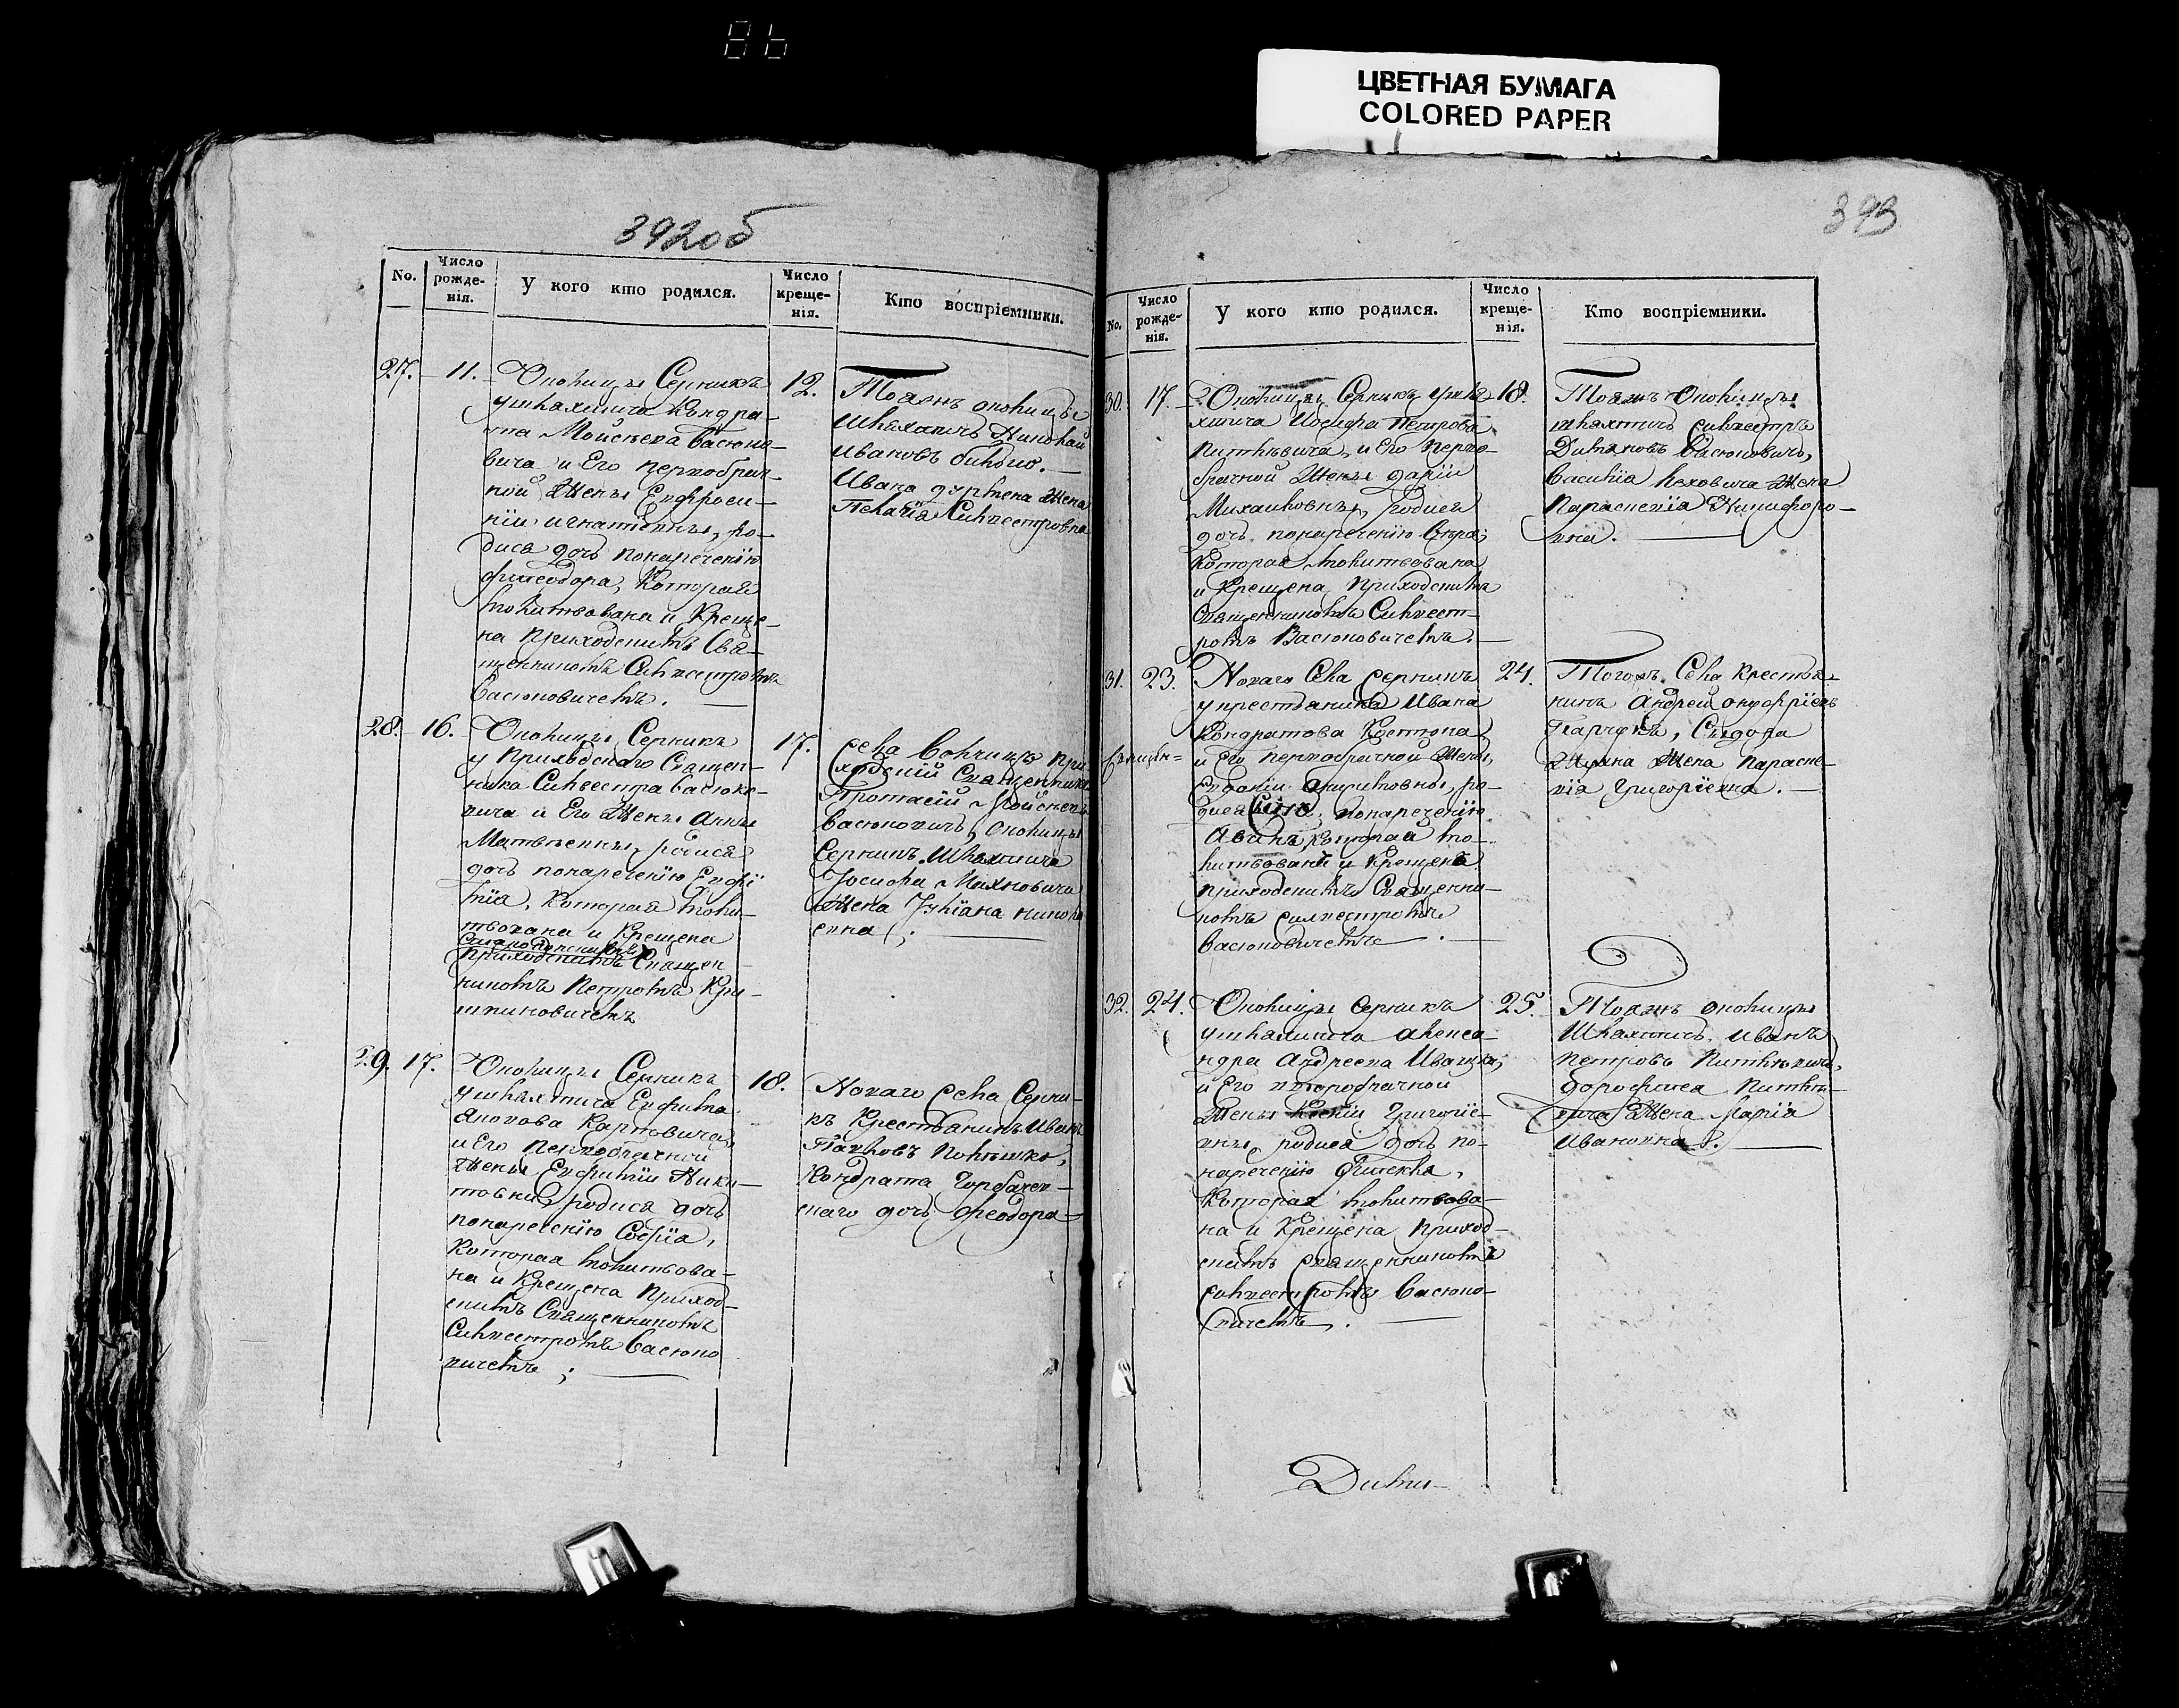 86
ЦВЕТНАЯ БУМАГА
COLORED PAPER
392об
No.
Число рожде-нія.
У кого кто родился.
Число креще-нія.
Кто воспріемники.
27. 11. Околицы Серникъ
ушляхтича Кондра-
та Мойсѣева Васюко-
вича и Его первобрач-
ной Жены Евфроси-
ніи Игнатовны, ро-
дися дочь понареченію
Феодора, Которая
молитвована и Креще-
на Приходскимъ Свя-
щенникомъ Сильвестромъ
Васюковичемъ.
12. Тояжъ околицы
Шляхтичъ Николай
Ивановъ
Ивана Жена
Пелагія Сильвестровна
28. 16. Околицы Серникъ
у Приходскаго Священ-
ника Сильвестра Васюко-
вича и Его Жены Анны
Матвѣевны, родися
дочь понареченію Евфи
мія, Которая моли-
твована и Крещена
Приходскимъ Священ-
никомъ Петромъ
17. Села при
ходскій Священникъ
Протасій Мойсѣевъ
Васюковичъ, околицы
Серникъ Шляхтича
Іосифа
Жена Іуліана Никола
евна.
29. 17. Околицы Серникъ
ушляхтича Евфима
Яковова Карповича
и Его первобрачной
Жены Евфиміи Ники-
товны родися дочь
понареченію Софіа,
Которая молитвова-
на и Крещена Приход-
скимъ Священникомъ
Сильвестромъ Васюко
вичемъ;
18. Новаго Села Серни-
къ Крестьянинъ Иванъ
Павловъ
Кондрата
дочь Феодора
393
No.
Число рожде-нія.
У кого кто родился.
Число креще-нія.
Кто воспріемники.
30. 17. Околицы Серникъ ушля-
хтича Иосифа Петрова
Питкѣвича, и Его перво-
брачной Жены Даріи
Михайловны, родися
дочь понареченію Вѣра;
Которая молитвована
и Крещена Приходскимъ
Священникомъ Сильвест-
ромъ Васюковичемъ.
18. Тояжъ Околицы
шляхтичъ Сильвестръ
Васюковичъ,
Василія Жена
Параскевія Никифоро-
вна.
31. 23. Новаго Села Серникъ
укрестьянина Ивана
Кондратова
и Его первобрачной Жены
Евдокіи ро-
дися Сынъ, понареченію
молитвованъ и Крещенъ
приходскимъ Священни-
комъ Силвестромъ
Васюковичемъ.
24. Тогожъ Села Крестья-
нинъ Андрей Онуфріевъ
Сидора
Жена Параске-
вія Григоріевна.
32. 24. Околицы Серникъ
ушляхтича Алекса-
ндра Андреева
и Его второбрачной
Жены Григоріе-
вны, родися дочь по-
нареченію Фіокла,
Которая молитвова-
на и Крещена Приход-
скимъ Священникомъ
Сильвестромъ Васюко-
вичемъ.
25. Тояжъ околицы
Шляхтичъ Иванъ
Петровъ Питкѣвичъ,
Дорофтея Питкѣ-
вича Жена Марія
Ивановна.